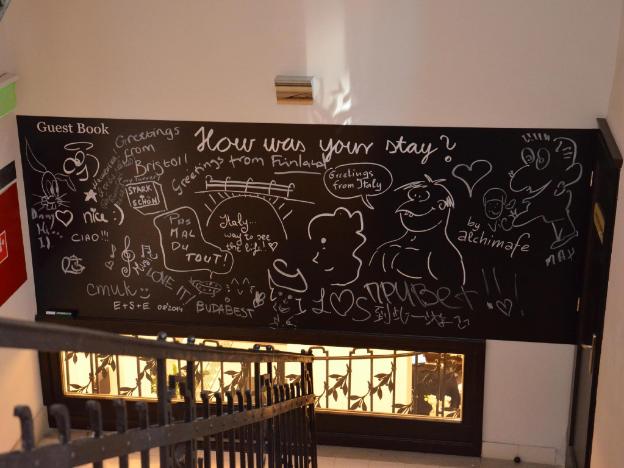 Guest Book
How was your stay?
Greetings
from
Bristol!
Greetings from Finland
STARK
SCHÖN
nice :)
CIAO!!!
Pas
MAL
DU
TOUT!
Italy...
way to see
the life!
Greetings
from Italy
by
alchimafe
MAX
LOVE IT!
cmuk
E+S+E 08/2014
BUDABEST
I ♡ S
Привет!!!